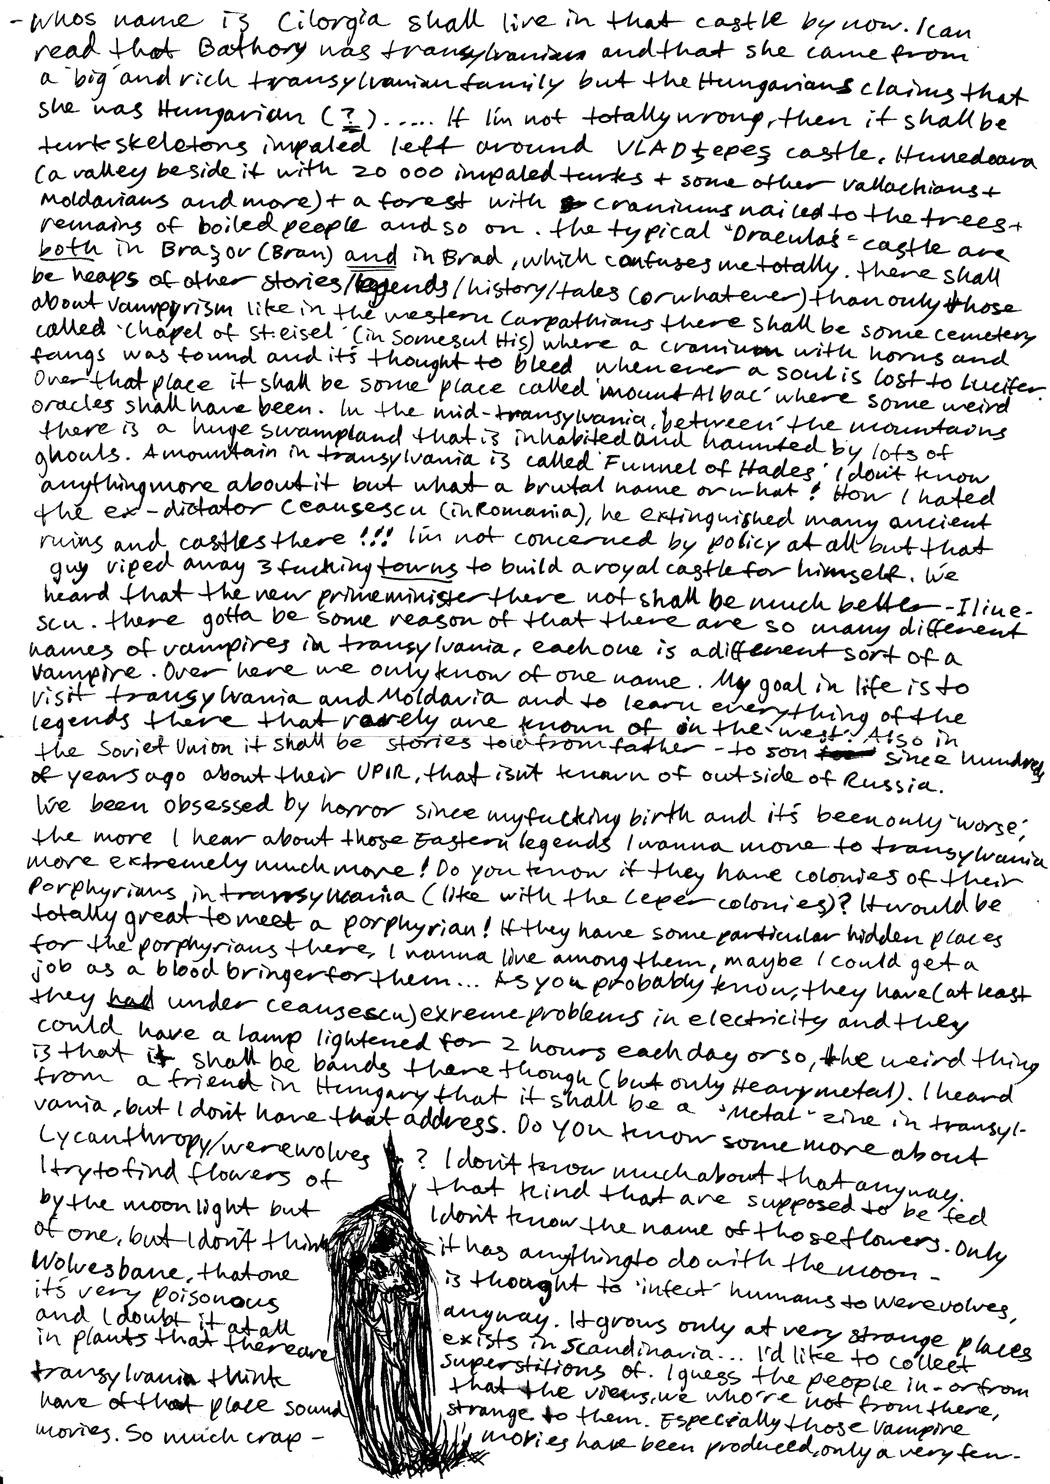 - whos name is Cilorgia shall live in that castle by now. I can
read that Bathory was transylvanian and that she came from
a 'big' and rich transylvanian family but the Hungarians claims that
she was Hungarian (?)..... If I'm not totally wrong, then it shall be
turk skeletons impaled left around VLAD ţepeş castle, Hunedoara
(a valley beside it with 20 000 impaled turks + some other vallachians +
Moldavians and more) + a forest with craniums nailed to the trees +
remains of boiled people and so on. the typical "Dracula's" castle are
both in Braşov (Bran) and in Brad, which confuses me totally. there shall
be heaps of other stories/legends/history/tales (or whatever) than only those
about vampyrism like in the western Carpathians there shall be some cemetery
called 'Chapel of st. eisel' (in Somesul His) where a cranium with horns and
fangs was found and it's thought to bleed whenever a soul is lost to Lucifer.
Over that place it shall be some place called 'mount Albac' where some weird
oracles shall have been. In the mid-transylvania, 'between' the mountains
there is a huge swampland that is inhabited and haunted by lots of
ghouls. A mountain in transylvania is called 'Funnel of Hades' I don't know
anything more about it but what a brutal name or what! How I hated
the ex-dictator Ceausescu (in Romania), he extinguished many ancient
ruins and castles there!!! I'm not concerned by policy at all but that
guy viped away 3 fucking towns to build a royal castle for himself. I've
heard that the new prime minister there not shall be much better - Iliue-
scu. there gotta be some reason of that there are so many different
names of vampires in transylvania, each one is a different sort of a
vampire. Over here we only know of one name. My goal in life is to
visit transylvania and Moldavia and to learn everything of the
legends there that rarely are known of in the 'west'. Also in
the Soviet Union it shall be stories told from father - to son since hundreds
of years ago about their UPIR, that isn't known of outside of Russia.
I've been obsessed by horror since my fucking birth and it's been only 'worse',
the more I hear about those Eastern legends I wanna move to transylvania
more extremely much more! Do you know if they have colonies of their
Porphyrians in transylvania (like with the Leper colonies)? It would be
totally great to meet a porphyrian! If they have some particular hidden places
for the porphyrians there, I wanna live among them, maybe I could get a
job as a blood bringer for them... As you probably know, they have (at least
they had under ceausescu) extreme problems in electricity and they
could have a lamp lightened for 2 hours each day or so, the weird thing
is that it shall be bands there though (but only Heavy metal). I heard
from a friend in Hungary that it shall be a "Metal" zine in transyl-
vania, but I don't have that address. Do you know some more about
Lycanthropy/werewolves ? I don't know much about that anyway.
I try to find flowers of that kind that are supposed to be fed
by the moonlight but I don't know the name of those flowers. Only
of one, but I don't think it has anything to do with the moon -
Wolvesbane, that one is thought to 'infect' humans to werevolves,
it's very poisonous anyway. It grows only at very strange places
and I doubt it at all exists in Scandinavia... I'd like to collect
in plants that there are superstitions of. I guess the people in- or from
transylvania think that the views, we who're not from there,
have of that place sound strange to them. Especially those vampire
movies. So much crap - movies have been produced, only a very few-